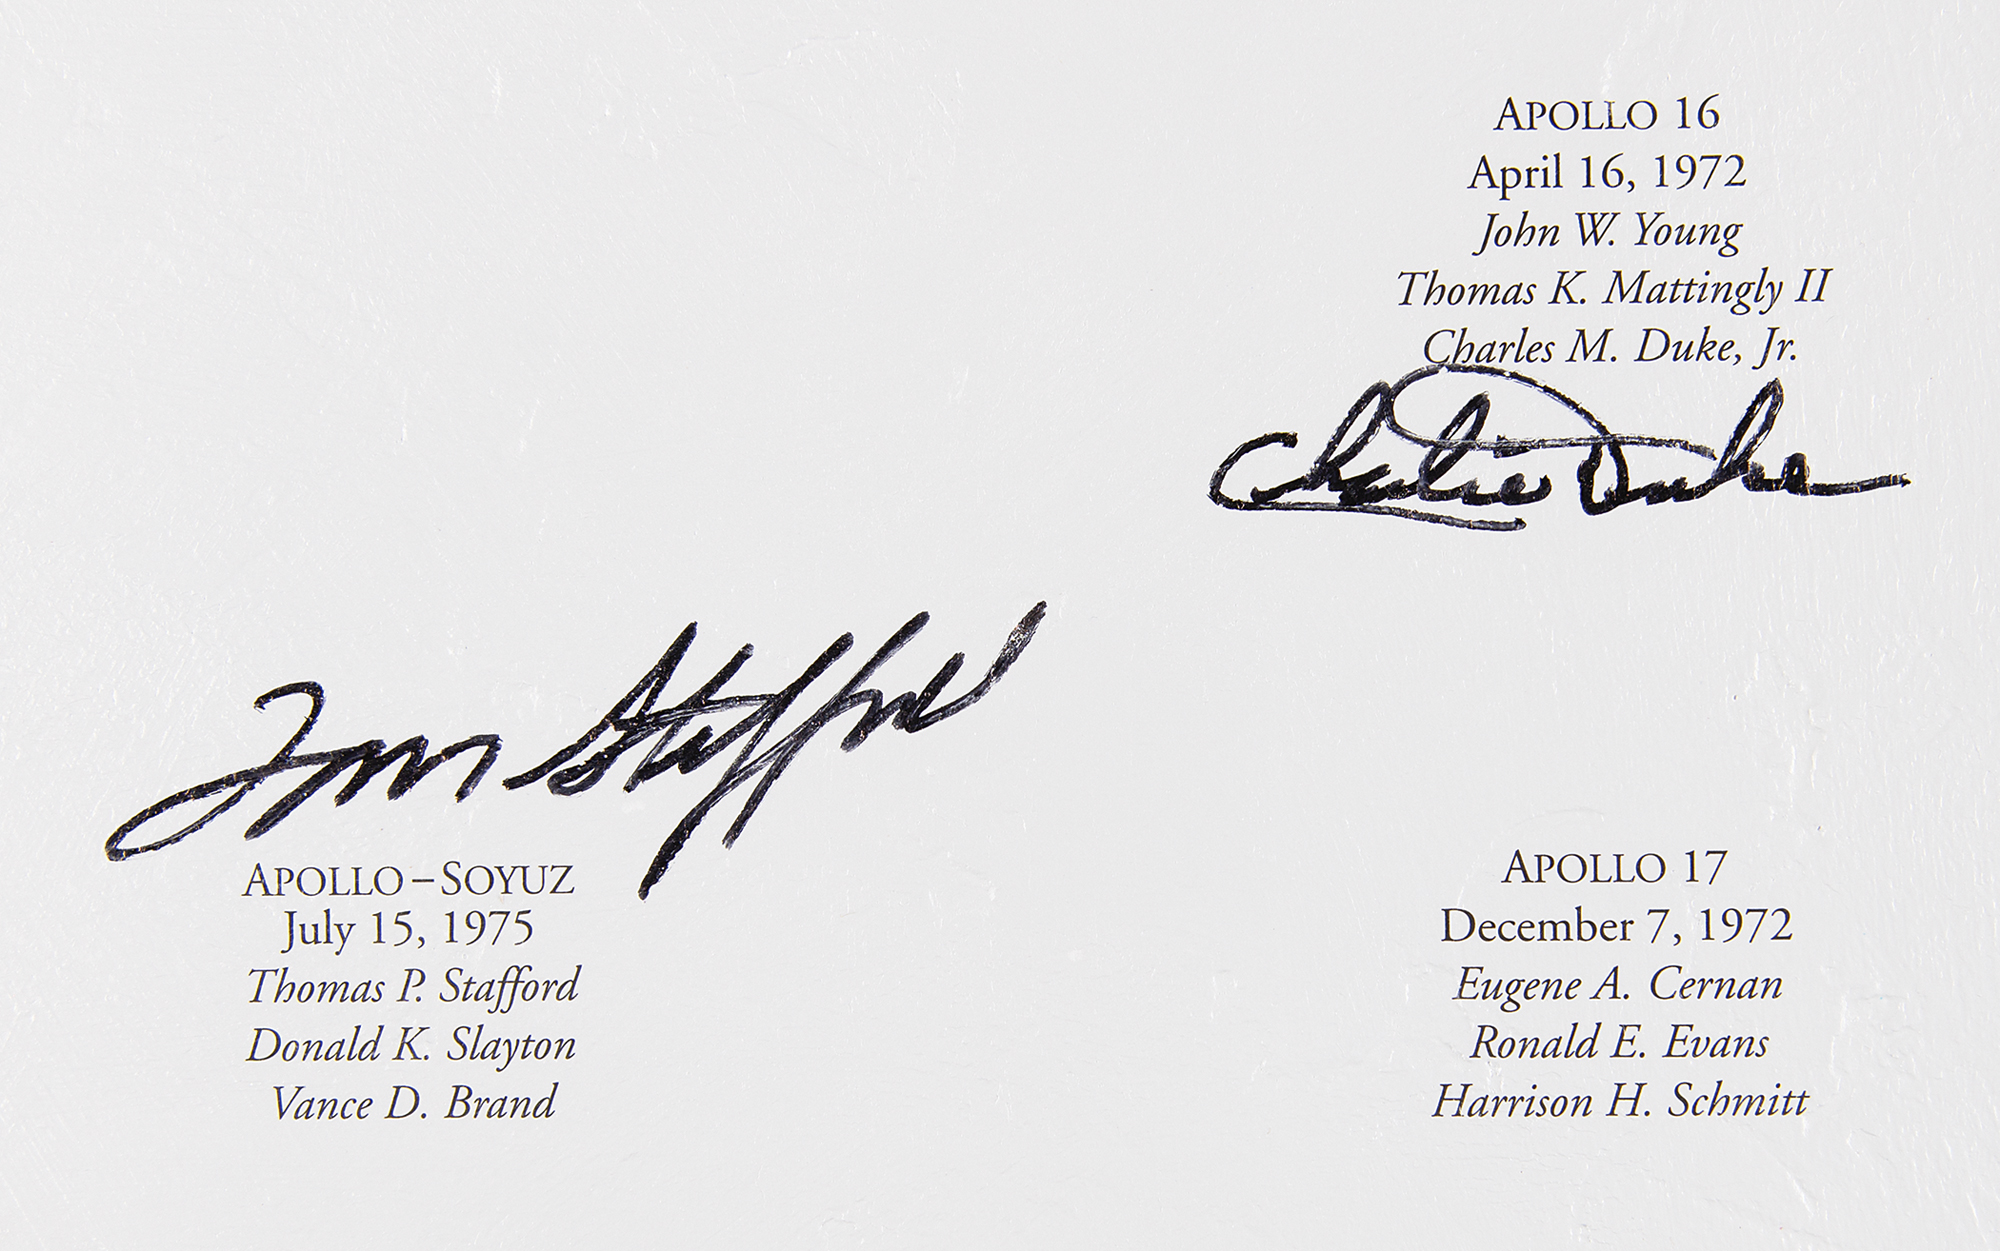 APOLLO 16
April 16, 1972
John W. Young
Thomas K. Mattingly II
Charles M. Duke, Jr.
Charlie Duke
Tom Stafford
APOLLO–SOYUZ
July 15, 1975
Thomas P. Stafford
Donald K. Slayton
Vance D. Brand
APOLLO 17
December 7, 1972
Eugene A. Cernan
Ronald E. Evans
Harrison H. Schmitt